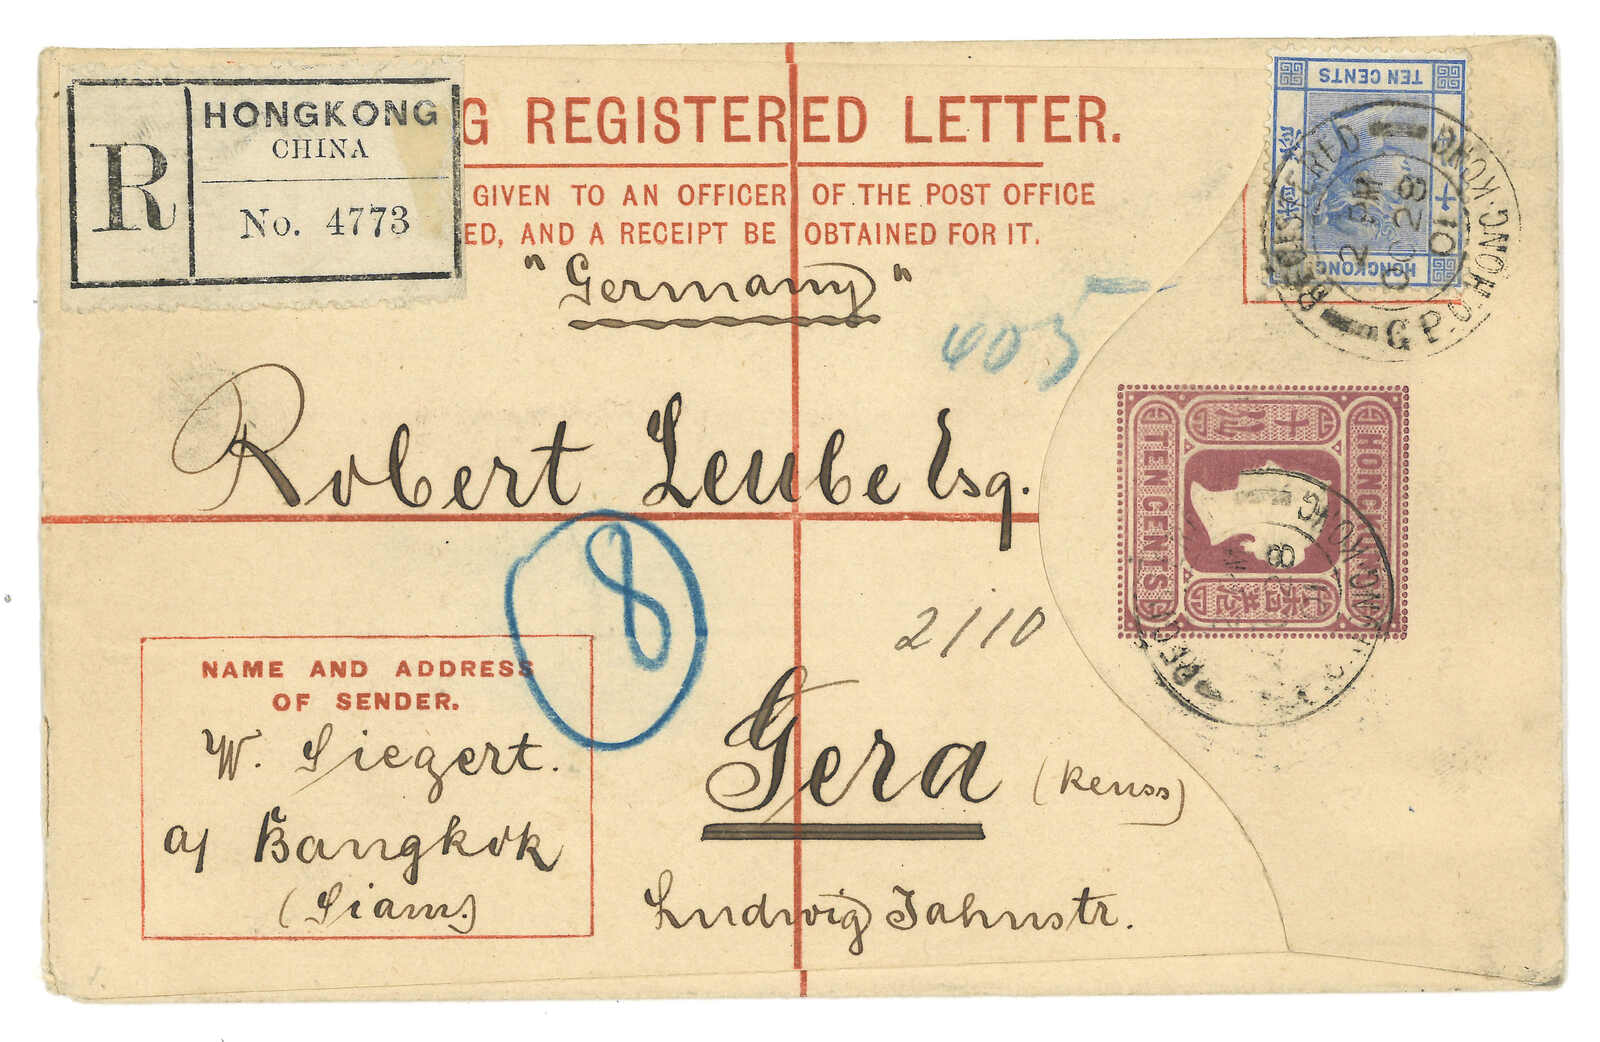 R
HONGKONG
CHINA
No. 4773
G REGISTERED LETTER.
GIVEN TO AN OFFICER OF THE POST OFFICE
ED, AND A RECEIPT BE OBTAINED FOR IT.
"Germany"
TEN CENTS
HONGKONG
REGISTERED
G.P.O. HONG-KONG
2 PM
OC 28
01
405
Robert Leube Esq.
HONG KONG
TEN CENTS
8
2/10
NAME AND ADDRESS
OF SENDER.
W. Siegert.
a/ Bangkok
(Siam.)
Gera (Reuss)
Ludwig Jahnstr.